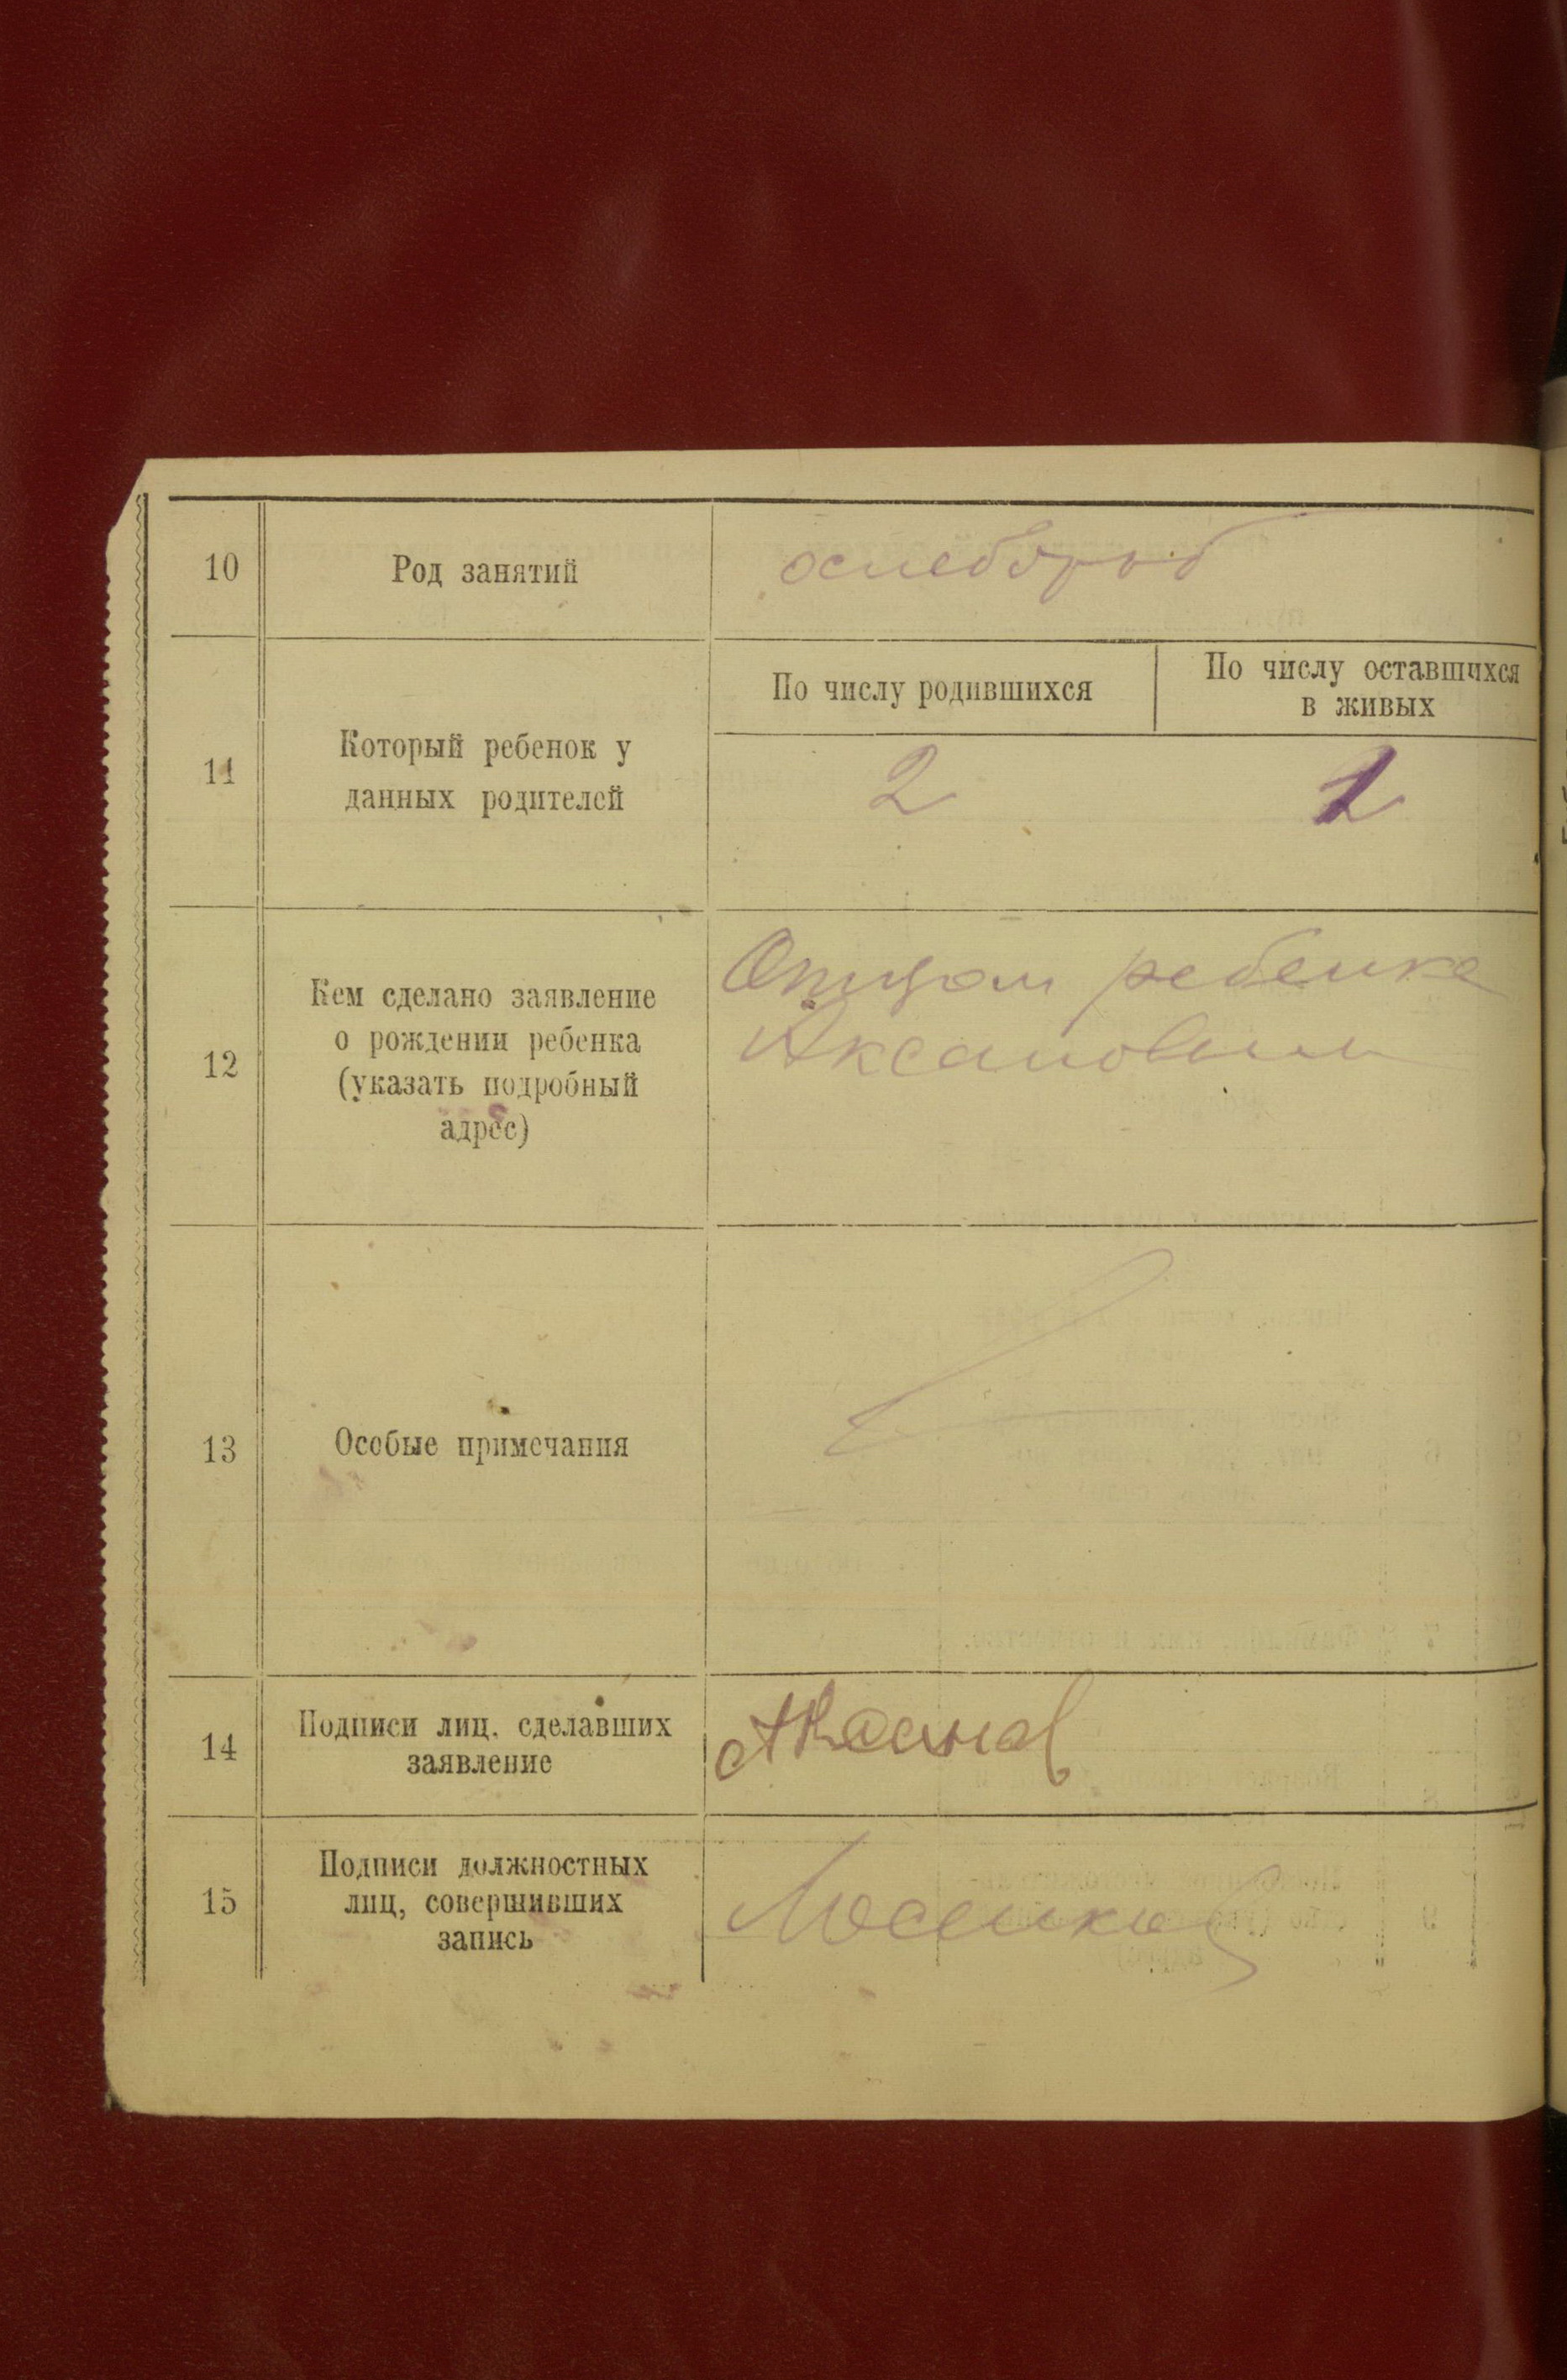 10 Род занятий
11 Который ребенок у
данных родителей
По числу родившихся
По числу оставшихся
в живых
2 1
12 Кем сделано заявление
о рождении ребенка
(указать подробный
адрес)
Отцом ребенка
Аксановым
13 Особые примечания
14 Подписи лиц, сделавших
заявление
15 Подписи должностных
лиц, совершивших
запись